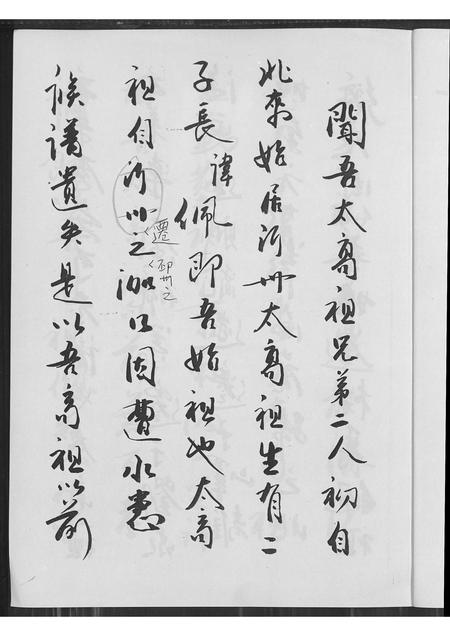 聞吾太高祖兄弟二人初自
北來始居沂州太高祖生有二
子長諱佩即吾始祖也太高
祖自沂州之泇口因遭水患
遷
邳州之
族譜遺失是以吾高祖以前